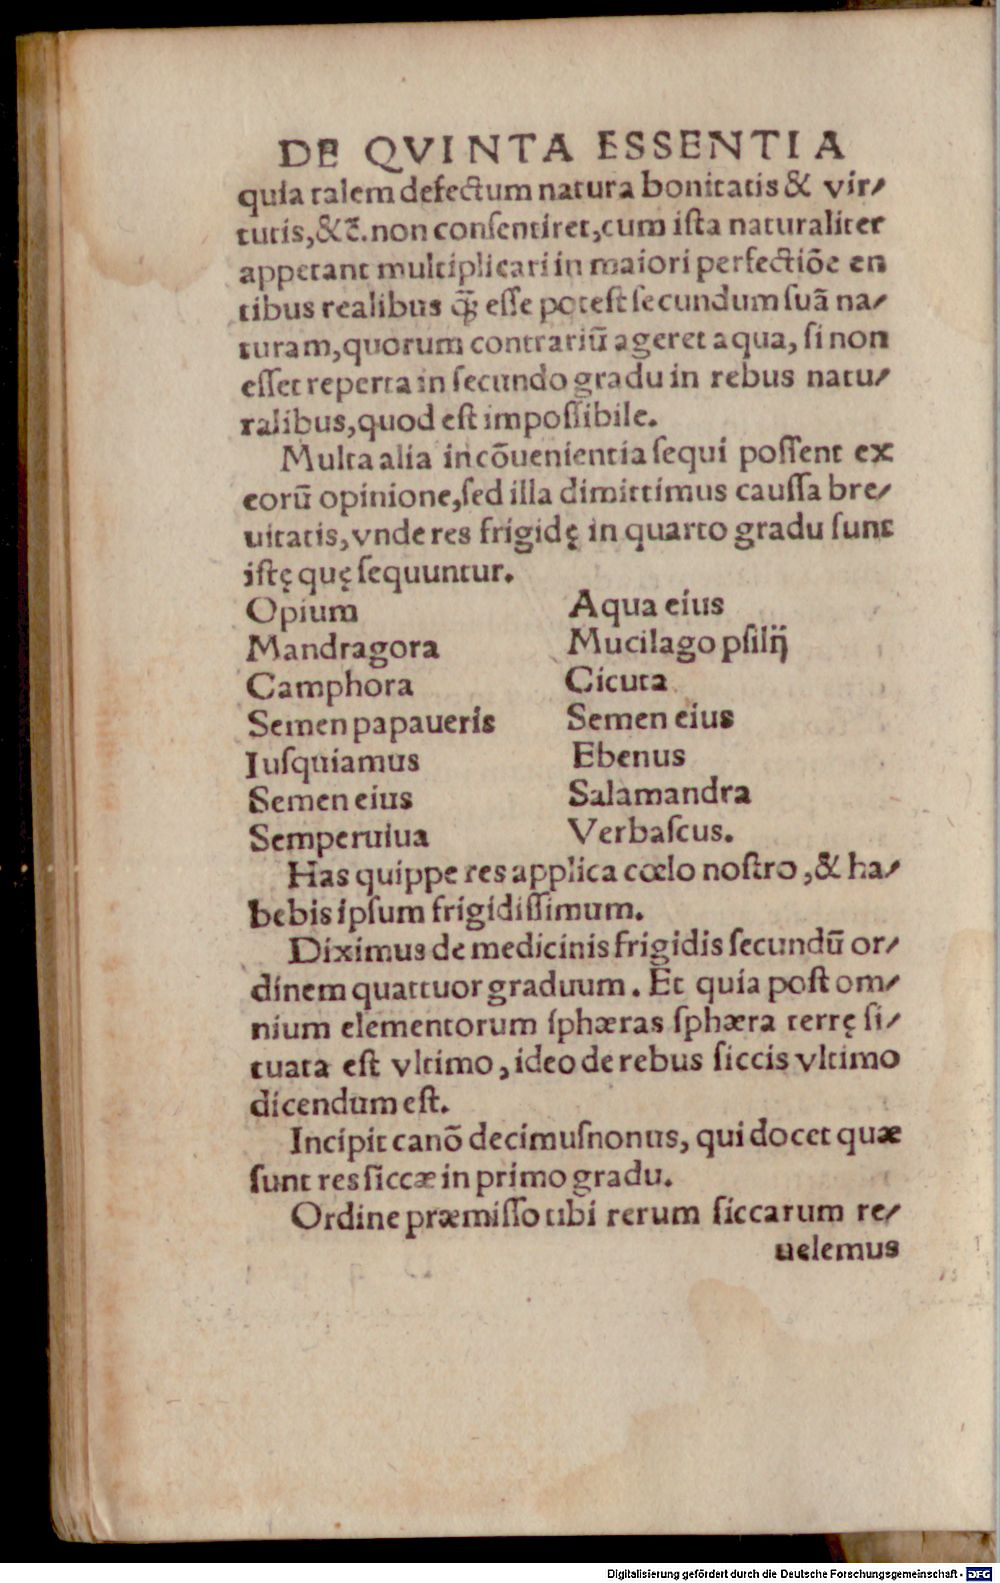 DE QVINTA ESSENTIA
quia talem defectum natura bonitatis & vir⸗
tutis,&c̄. non conſentiret, cum iſta naturaliter
appetant multiplicari in maiori perfectiõe en
tibus realibus q̃; eſſe poteſt ſecundum ſuã na⸗
turam, quorum contrariũ ageret aqua, ſi non
eſſet reperta in ſecundo gradu in rebus natu⸗
ralibus, quod eſt impoſſibile.
Multa alia incõuenientia ſequi poſſent ex
eorũ opinione, ſed illa dimittimus cauſſa bre⸗
uitatis, vnde res frigidę in quarto gradu ſunt
iſtę quę ſequuntur.
Opium Aqua eius
Mandragora Mucilago pſilij
Camphora Cicuta
Semen papaueris Semen eius
Iuſquiamus Ebenus
Semen eius Salamandra
Semperuiua Verbaſcus.
Has quippe res applica cœlo noſtro, & ha⸗
bebis ipſum frigidiſſimum.
Diximus de medicinis frigidis ſecundũ or⸗
dinem quattuor graduum. Et quia poſt om⸗
nium elementorum ſphæras ſphæra terrę ſi⸗
tuata eſt vltimo, ideo de rebus ſiccis vltimo
dicendum eſt.
Incipit canõ decimuſnonus, qui docet quæ
ſunt res ſiccæ in primo gradu.
Ordine præmiſſo tibi rerum ſiccarum re⸗
uelemus
Digitalisierung gefördert durch die Deutsche Forschungsgemeinschaft - DFG